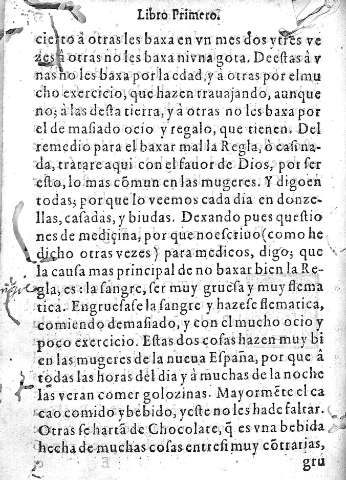 Libro Primero.
cierto à otras les baxa en vn mes dos ytres ve
zes à otras no les baxa nivna gota. Deestas à v
nas no les baxa por la edad, y à otras por el mu
cho exercicio, que hazen trauajando, aunque
no; à las desta tierra, y à otras no les baxa por
el de masiado ocio y regalo, que tienen. Del
remedio para el baxar mal la Regla, ò casi na-
da, tratare aqui con el fauor de Dios, por ser
esto, lo mas comun en las mugeres. Y digo en
todas; por que lo veemos cada dia en donze-
llas, casadas, y biudas. Dexando pues questio
nes de mediçina, por que noescriuo (como he
dicho otras vezes) para medicos, digo; que
la causa mas principal de no baxar bien la Re-
gla, es: la sangre, ser muy gruesa y muy flema
tica. Engruesase la sangre y hazese flematica,
comiendo demasiado, y con el mucho ocio y
poco exercicio. Estas dos cosas hazen muy bi
en las mugeres de la nueua España, por que à
todas las horas del dia y à muchas de la noche
las veran comer golozinas. Mayormẽte el ca
cao comido ybebido, yeste no les hade faltar.
Otras se hartã de Chocolate, q̃ es vna bebida
hecha de muchas cosas entresi muy cõtrarias,
gru